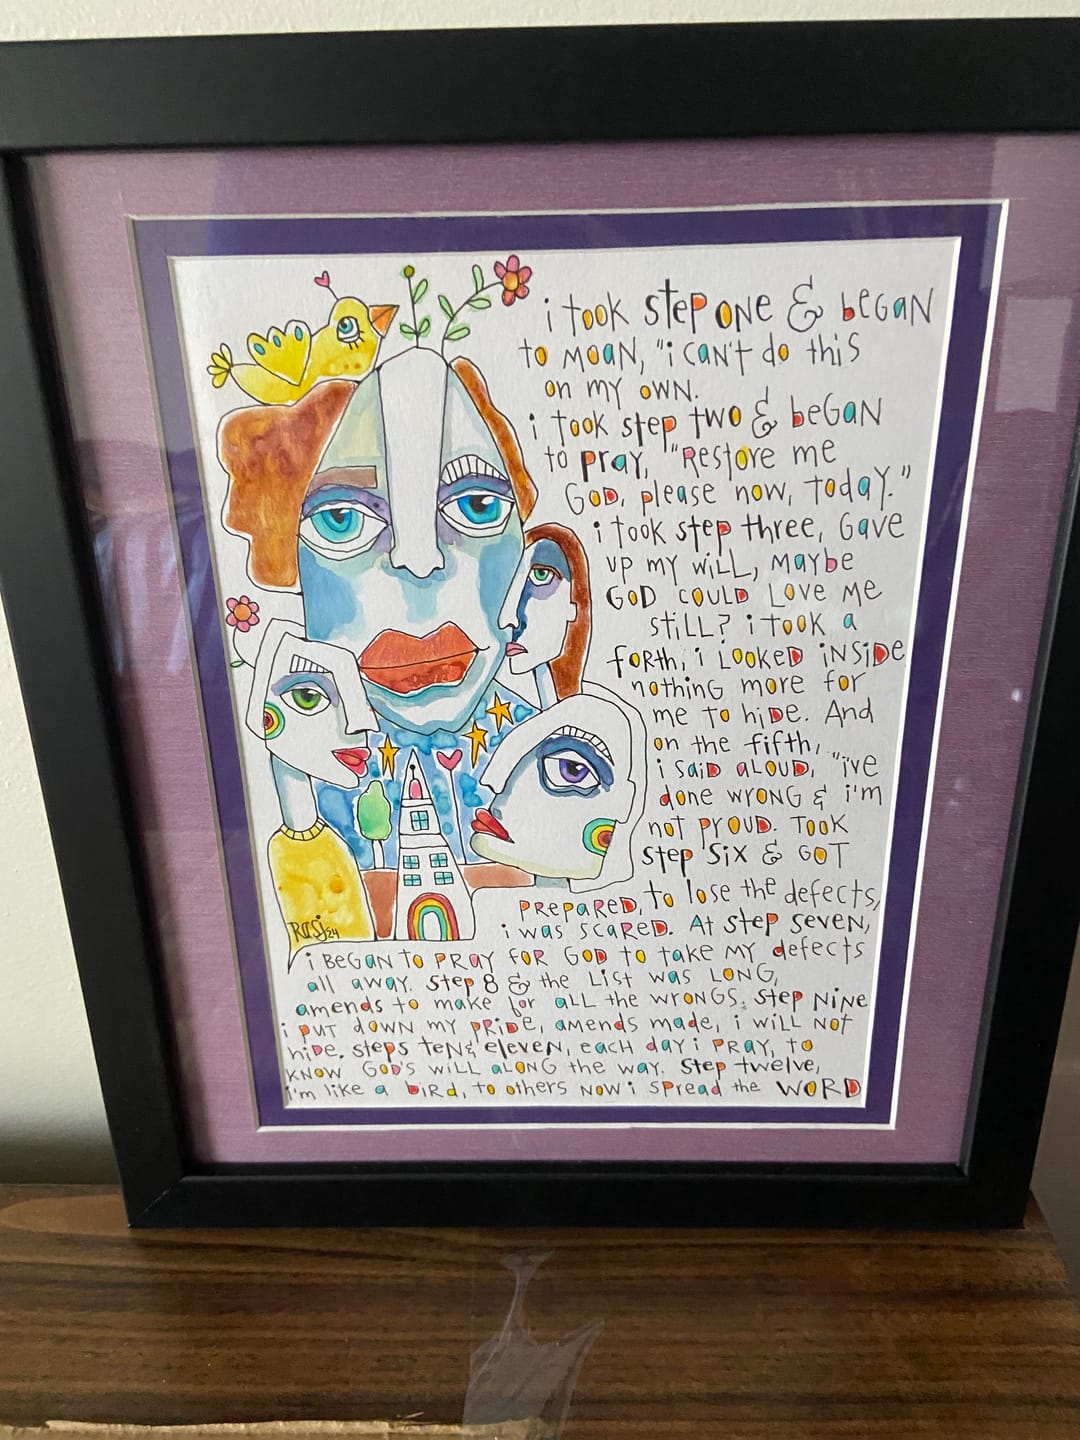 i took step one & began
to moan, "i can't do this
on my own.
i took step two & began
to pray, "Restore me
God, please now, today."
i took step three, Gave
up my will, maybe
God could love me
still? i took a
forth, i looked inside
nothing more for
me to hide. And
on the fifth,
i said aloud, "i've
done wrong & i'm
not proud. Took
step six & got
prepared, to lose the defects,
i was scared. At step seven,
i began to pray for God to take my defects
all away. Step 8 & the list was long,
amends to make for all the wrongs. Step nine
i put down my pride, amends made, i will not
hide. steps ten & eleven, each day i pray, to
know God's will along the way. Step twelve,
i'm like a bird, to others now i spread the word